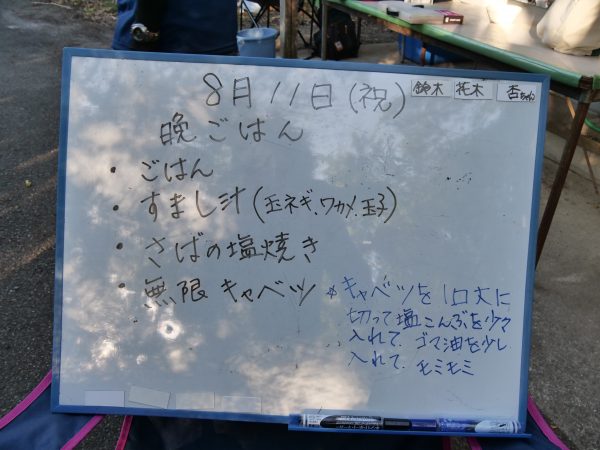 8月11日(祝) 鈴木 托木 杏ちゃん
晩ごはん
・ごはん
・すまし汁(玉ネギ、ワカメ、玉子)
・さばの塩焼き
・無限キャベツ ※キャベツを1口大に
切って塩こんぶを少々
入れて、ゴマ油を少し
入れて、モミモミ